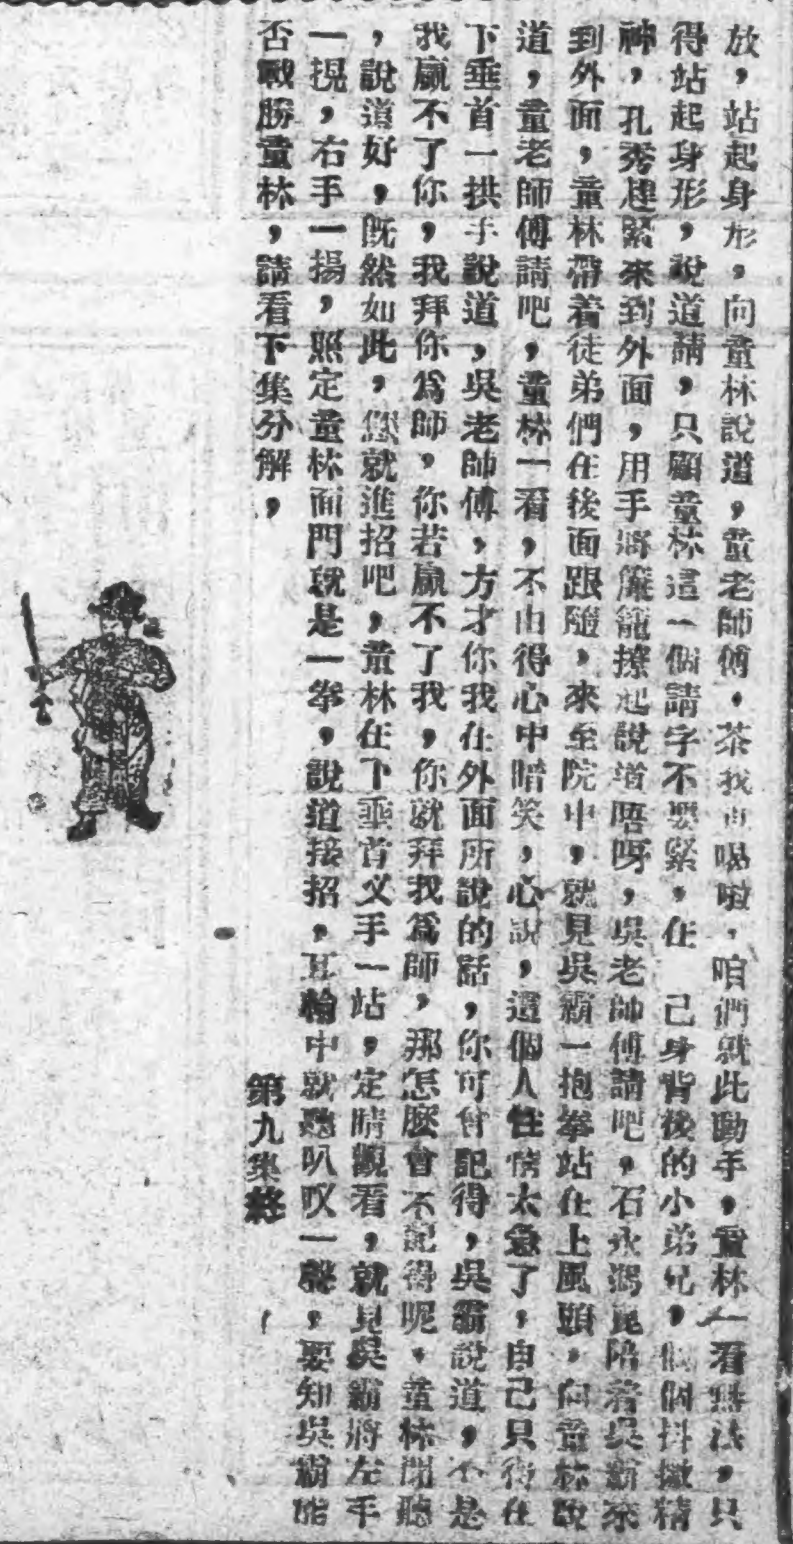 放，站起身形，向童林說道，童老師傅，茶我也喝啦，咱們就此動手，童林一看無法，只
得站起身形，說道請，只顧童林這一個請字不要緊，在　己身背後的小弟兄，個個抖擻精
神，孔秀趕緊來到外面，用手將簾籠撩起說道唔呀，吳老師傅請吧，石永陪着吳霸來
到外面，童林帶着徒弟們在後面跟隨，來至院中，就見吳霸一抱拳站在上風頭，向童林說
道，童老師傅請吧，童林一看，不由得心中暗笑，心說，這個人性情太急了，自己只得在
下垂首一拱手說道，吳老師傅，方才你我在外面所說的話，你可曾記得，吳霸說道，不是
我贏不了你，我拜你爲師，你若贏不了我，你就拜我爲師，那怎麽會不記得呢，童林聞聽
，說道好，既然如此，您就進招吧，童林在下垂首义手一站，定睛觀看，就見吳霸將左手
一提，右手一揚，照定童林面門就是一拳，說道接招，互輪中就聽叭叹一聲，要知吳霸能
否戰勝童林，請看下集分解，
第九集終